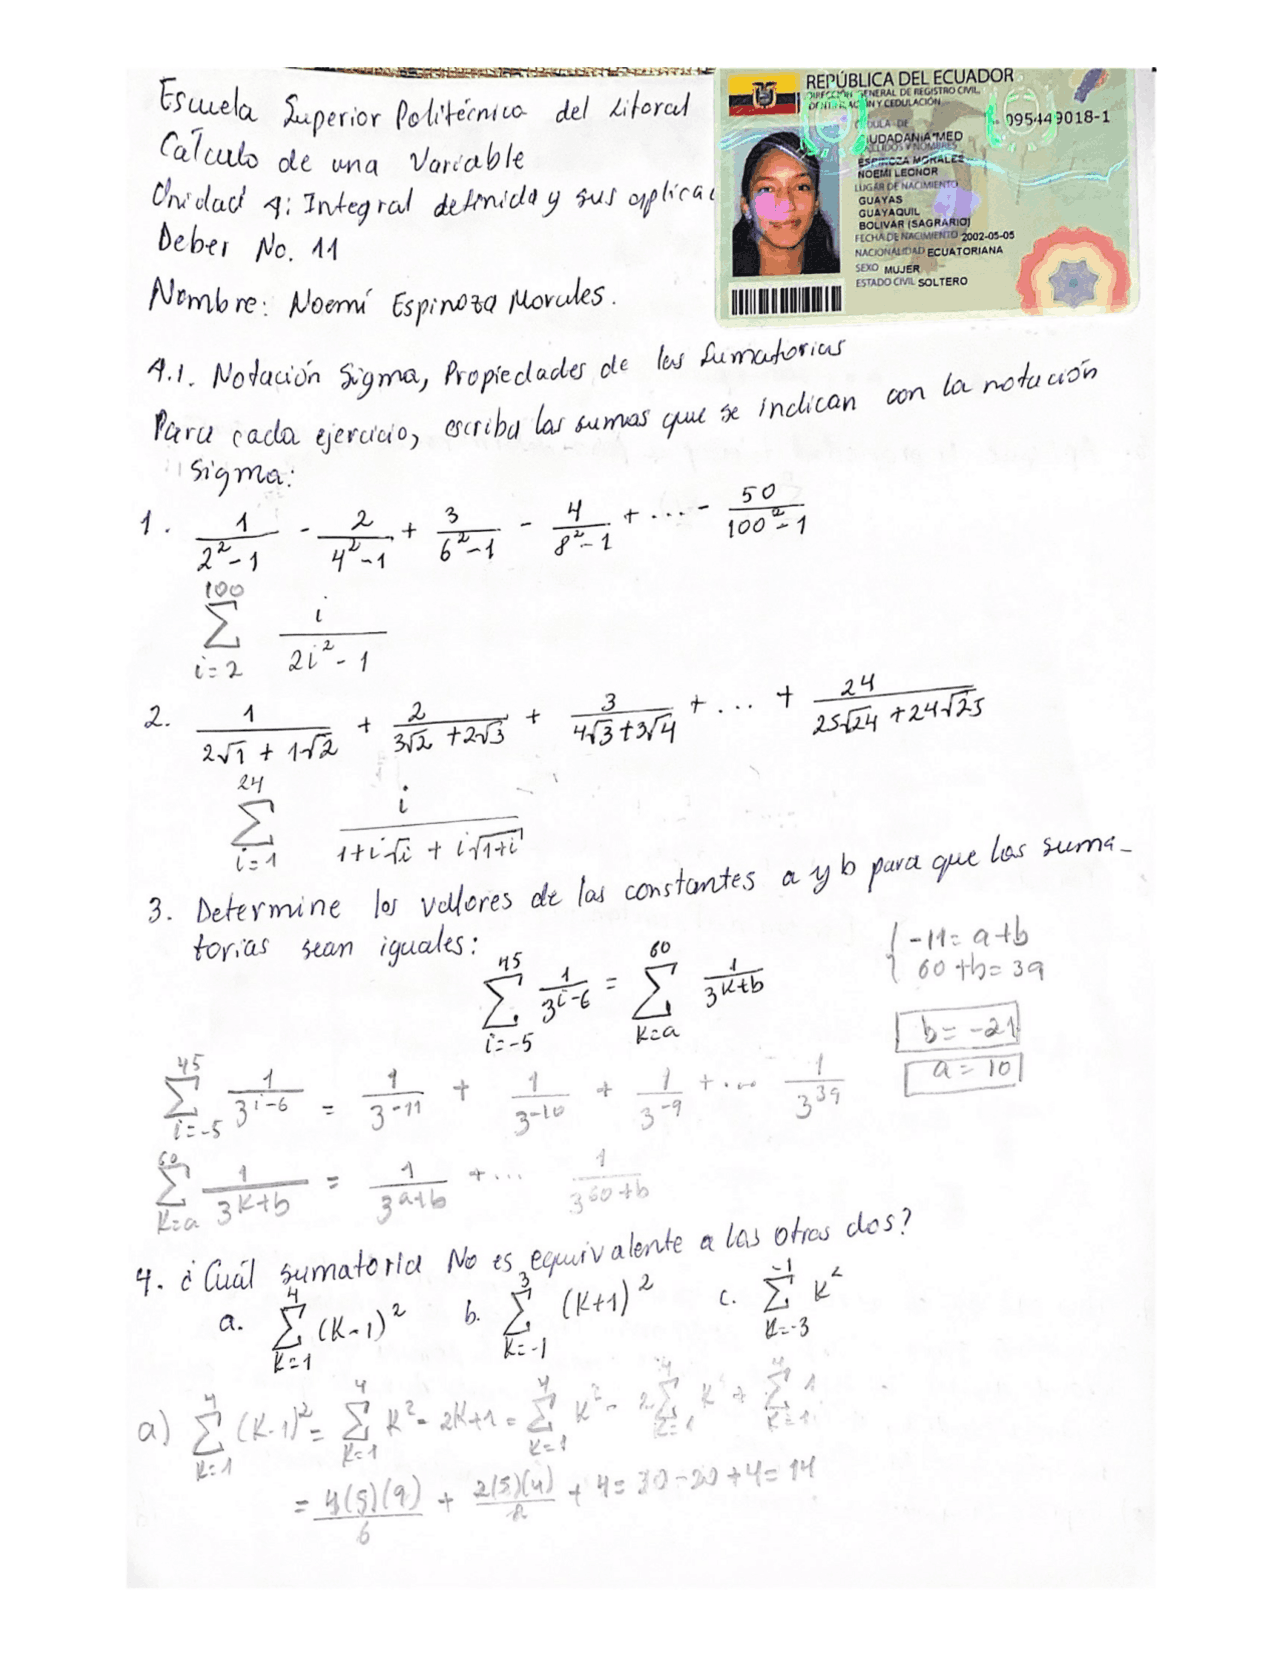 Escuela Superior Politécnica del Litoral
Cálculo de una Variable
Unidad 4: Integral definida y sus aplicac
Deber No. 11
Nombre: Noemí Espinoza Morales.
REPÚBLICA DEL ECUADOR
DIRECCIÓN GENERAL DE REGISTRO CIVIL,
IDENTIFICACIÓN Y CEDULACIÓN
CÉDULA DE
095449018-1
CIUDADANIA*MED
APELLIDOS Y NOMBRES
ESPINOZA MORALES
NOEMI LEONOR
LUGAR DE NACIMIENTO
GUAYAS
GUAYAQUIL
BOLIVAR (SAGRARIO)
FECHA DE NACIMIENTO 2002-05-05
NACIONALIDAD ECUATORIANA
SEXO MUJER
ESTADO CIVIL SOLTERO
4.1. Notación Sigma, Propiedades de las Sumatorias
Para cada ejercicio, escriba las sumas que se indican con la notación
sigma:
1. 1/(2²-1) - 2/(4²-1) + 3/(6²-1) - 4/(8²-1) + ... - 50/(100²-1)
100
∑ i/(2i²-1)
i=2
2. 1/(2√1 + 1√2) + 2/(3√2 + 2√3) + 3/(4√3 + 3√4) + ... + 24/(25√24 + 24√25)
24
∑ i/(1+i√i + i√1+i)
i=1
3. Determine los valores de las constantes a y b para que las suma-
torias sean iguales:
45 60
∑ 1/3^(i-6) = ∑ 1/3^(k+b)
i=-5 k=a
-11 = a+b
60+b = 39
b = -21
a = 10
45
∑ 1/3^(i-6) = 1/3^(-11) + 1/3^(-10) + 1/3^(-9) + ... 1/3^39
i=-5
60
∑ 1/3^(k+b) = 1/3^(a+b) + ... 1/3^(60+b)
k=a
4. ¿Cuál sumatoria No es equivalente a las otras dos?
4 3 -1
a. ∑ (k-1)² b. ∑ (k+1)² c. ∑ k²
k=1 k=-1 k=-3
4 4 4 4 4
a) ∑ (k-1)² = ∑ k² - 2k+1 = ∑ k² - 2∑ k + ∑ 1
k=1 k=1 k=1 k=1 k=1
= 4(5)(9)/6 + 2(5)(4)/2 + 4 = 30-20+4 = 14